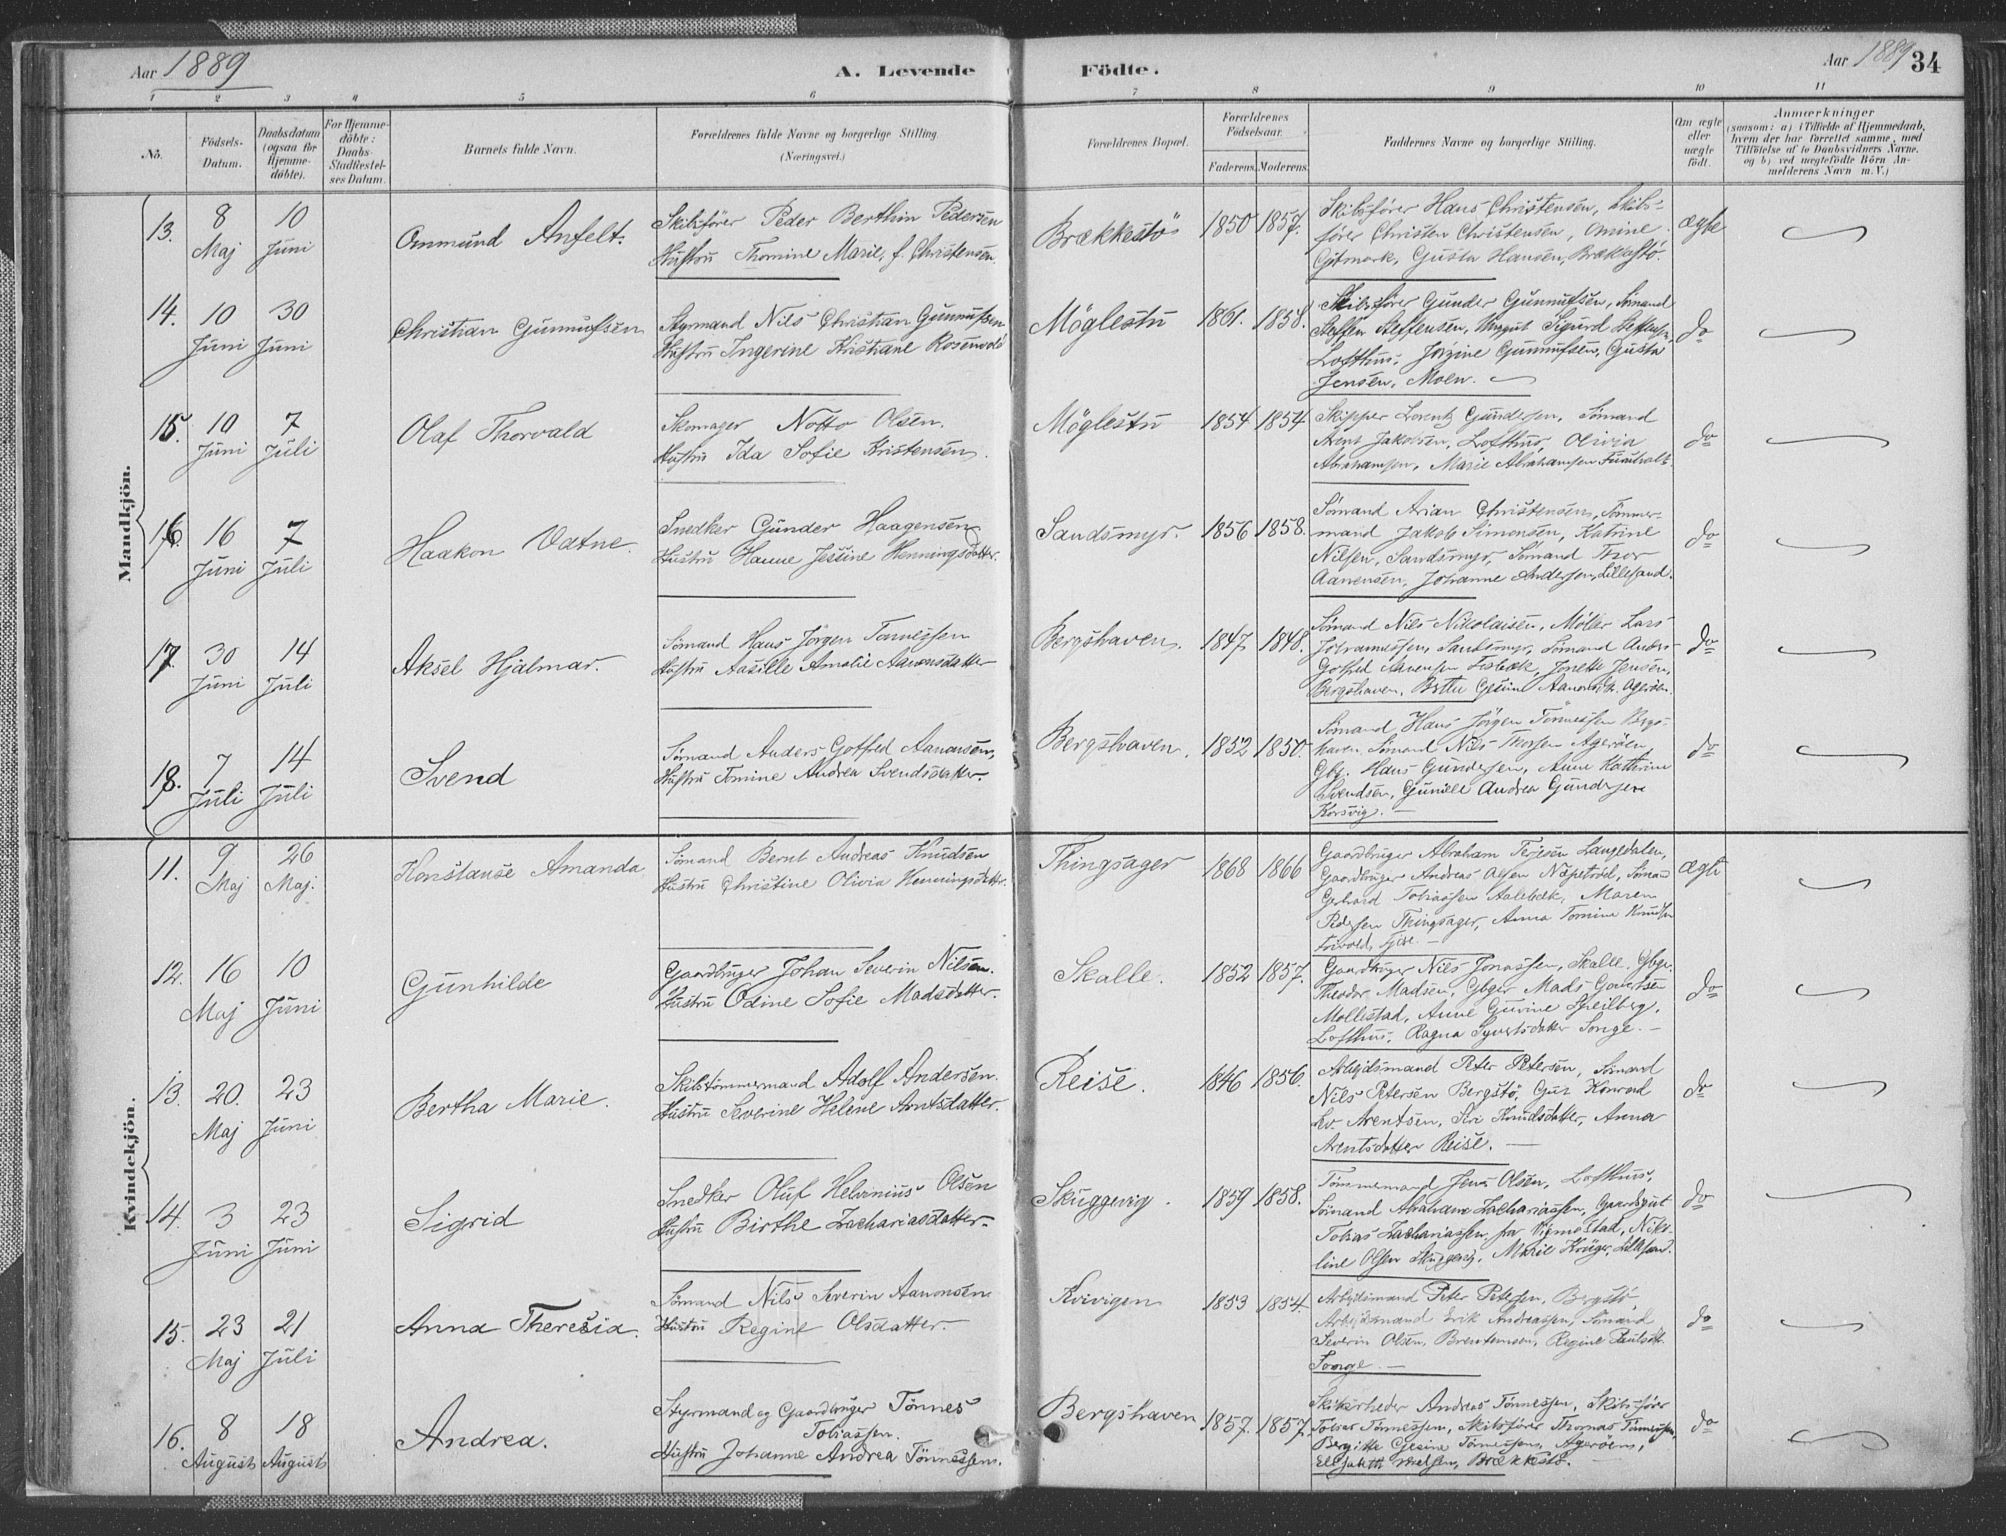 Aar 1889
A. Levende Födte.
Aar 1889 34
1 2 3 4 5 6 7 8 9 10 11
No.
Födsels-
Datum.
Daabsdatum
(ogsaa for
Hjemme-
døbte).
For Hjemme-
døbte:
Daabs-
Stadfæstel-
ses Datum.
Barnets fulde Navn.
Forældrenes fulde Navne og borgerlige Stilling.
(Næringsvei.)
Forældrenes Bopæl.
Forældrenes
Födselsaar.
Faderens. Moderens.
Faddernes Navne og borgerlige Stilling.
Om ægte
eller
uægte
født.
Anmærkninger
(saasom: a) i Tilfælde af Hjemmedaab,
hvem der har forrettet samme, med
Tilföielse af to Daabsvidners Navne,
og b) ved uægtefödte Börn An-
melderens Navn m. V.)
Mandkjön.
13. 8 Maj 10 Juni Ommund Anfelt.
Skibsfører Peder Berthin Pedersen
Hustru Thomine Marie, f. Christensen.
Brækkestö 1850 1857.
Skibsfører Hans Christensen, Skibs-
fører Christen Christensen, Omine
Gitmark, Gusta Hansen, Brækkestö.
ægte
14. 10 Juni 30 Juni Christian Gunnufsen
Styrmand Nils Christian Gunnufsen
Hustru Ingerine Kristiane Rosenvold
Möglestu 1861. 1858.
Skibsfører Gunder Gunnufsen, Sömand
Steffen Steffensen, Unggut Sigurd Steffensen,
Lofthus, Jorgine Gunnufsen, Gusta
Jensen, Moen.
do
15. 10 Juni 7 Juli Olaf Thorvald
Skomager Notto Olsen.
Hustru Ida Sofie Kristensen.
Möglestu 1854 1854
Skipper Lorentz Gundersen, Sömand
Arent Jakobsen, Lofthus, Olivia
Abrahamsen, Marie Abrahamsen
do
16. 16 Juni 7 Juli Haakon Vatne.
Snedker Gunder Haagensen
Hustru Hanne Jesine Henningsdatter.
Sandsmyr. 1856 1858.
Sömand Arian Christensen, Tömmer-
mand Jakob Simonsen, Katrine
Nilsen, Sandsmyr, Sömand Thor
Aanensen, Johanne Andersen, Lillesand.
do
17. 30 Juni 14 Juli Aksel Hjalmar.
Sömand Hans Jörgen Tönnessen
Hustru Aasille Amalie Aanonsdatter
Bergshaven. 1847 1848.
Sömand Nils Nikolaisen, Möller Lars
Johannessen, Sandsmyr, Sömand Anders
Gotfred Aanensen Jonette Jensen,
Bergshaven, Gesine Agerøen.
do
18. 7 Juli 14 Juli Svend
Sömand Anders Gotfred Aanonsen,
Hustru Tomine Andrea Svendsdatter.
Bergshaven. 1852 1850.
Sömand Hans Jörgen Tönnessen Bergs-
haven, Sömand Nils Agerøen,
Gbg. Hans Gundersen, Anne Kathrine
Svendsen, Gunille Andrea Gundersen
Korsvig.
do
Kvindekjön.
11. 9 Maj 26 Maj. Konstanse Amanda
Sömand Bernt Andreas Knudsen
Hustru Christine Olivia Henningsdatter.
Thingsager 1868 1866
Gaardbruger Abraham Terjesen Langedalen,
Gaardbruger Andreas Olsen Sömand
Gerhard Tobiassen Aalebæk, Maren
Pedersen Thingsager, Anna Tomine Knudsen
ægte
12. 16 Maj 10 Juni Gunhilde
Gaardbruger Johan Severin Nilsen.
Hustru Odine Sofie Madsdatter.
Skalle. 1852 1857.
Gaardbruger Nils Jonassen, Skalle. Gbgr.
Theodor Madsen, Gbger Mads
Mollestad, Anne Gurine
Lofthus, Ragna Syvertsdatter Songe.
do
13. 20. Maj 23 Juni Bertha Marie.
Skibstömmermand Adolf Andersen.
Hustru Severine Helene Arntsdatter.
Reise. 1846 1856.
Arbejdsmand Peter Petersen, Sömand
Nils Petersen Bergstö, Gut Konrad
Arentsen, Siri Knudsdatter, Anna
Arentsdatter Reise.
do
14. 3 Juni 23 Juni Sigrid
Snedker Oluf Helvinius Olsen
Hustru Birthe Zachariasdatter.
Skuggevig. 1859 1858.
Tömmermand Jens Olsen, Lofthus,
Sömand Abraham Zachariassen, Gaardsgut
Tobias Zachariassen fra Vigmostad, Niko-
line Olsen Skuggevig, Marie Krüger, Lillesand.
do
15. 23 Maj 21 Juli Anna Theresia.
Sömand Nils Severin Aanonsen
Hustru Regine Olsdatter.
Kvivigen 1853 1854.
Arbejdsmand Peter Petersen, Bergstö,
Arbejdsmand Erik Andreassen, Sömand
Severin Olsen, Regine
Songe.
do
16. 8 August 18 August Andrea.
Styrmand og Gaardbruger Tönnes
Tobiassen.
Hustru Johanne Andrea Tönnessen.
Bergshaven 1857. 1857.
Skibsrheder Andreas Tönnessen, Skibsfører
Tobias Tönnessen, Skibsfører Thomas Tönnessen,
Bergitte Gesine Tönnessen, Agerøen,
Elisabeth Nielsen, Brækkestö.
do